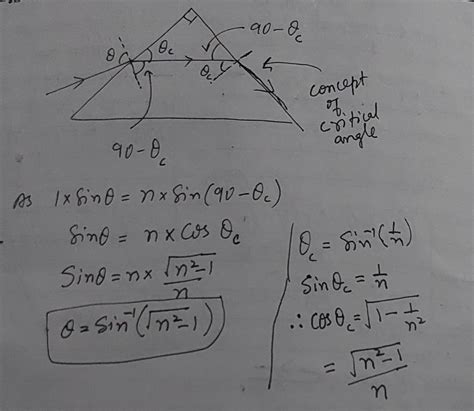 θ
θc
90-θc
θc
90-θc
concept
of
critical
angle
As 1×Sinθ = n×Sin(90-θc)
Sinθ = n × cos θc
Sinθ = n × √(n²-1)/n
θ = Sin⁻¹(√n²-1)
θc = Sin⁻¹(1/n)
Sinθc = 1/n
∴ cosθc = √(1 - 1/n²)
= √(n²-1)/n